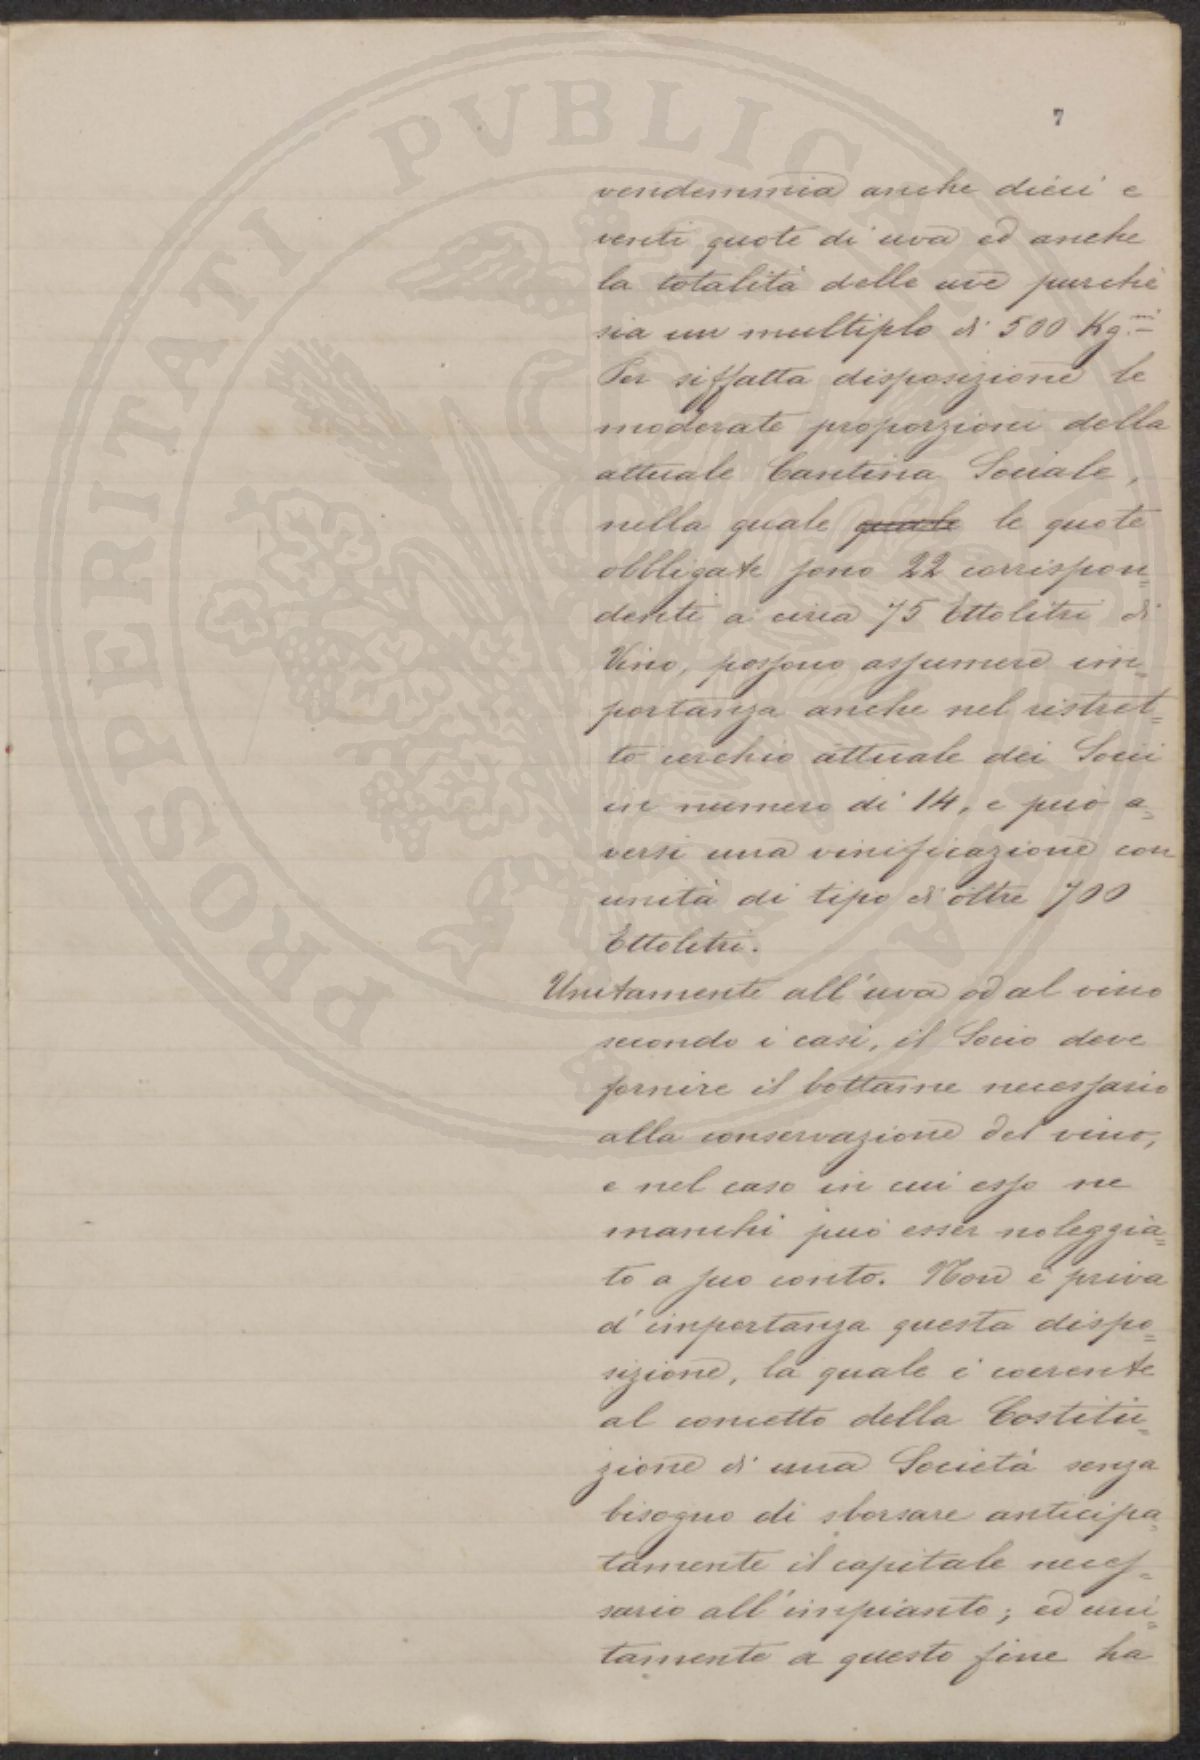 7
vendemmia anche dieci e
venti quote di uva ed anche
la totalità delle uve purchè
sia un multiplo di 500 Kg.mi
Per siffatta disposizione le
moderate proporzioni della
attuale Cantina Sociale,
nella quale quale le quote
obbligate sono 22 corrispon=
denti a circa 75 Ettolitri di
Vino, possono assumere im=
portanza anche nel ristret=
to cerchio attuale dei Socii
in numero di 14, e può a=
versi una vinificazione con
unità di tipo di oltre 700
Ettolitri.
Unitamente all'uva od al vino
secondo i casi, il Socio deve
fornire il bottame necessario
alla conservazione del vino,
e nel caso in cui esso ne
manchi può esser noleggia=
to a suo conto. Non è priva
d'importanza questa dispo=
sizione, la quale è coerente
al concetto della Costitu=
zione di una Società senza
bisogno di sborsare anticipa=
tamente il capitale neces=
sario all'impianto; ed uni=
tamente a questo fine ha
PROSPERITATI PVBLICAE